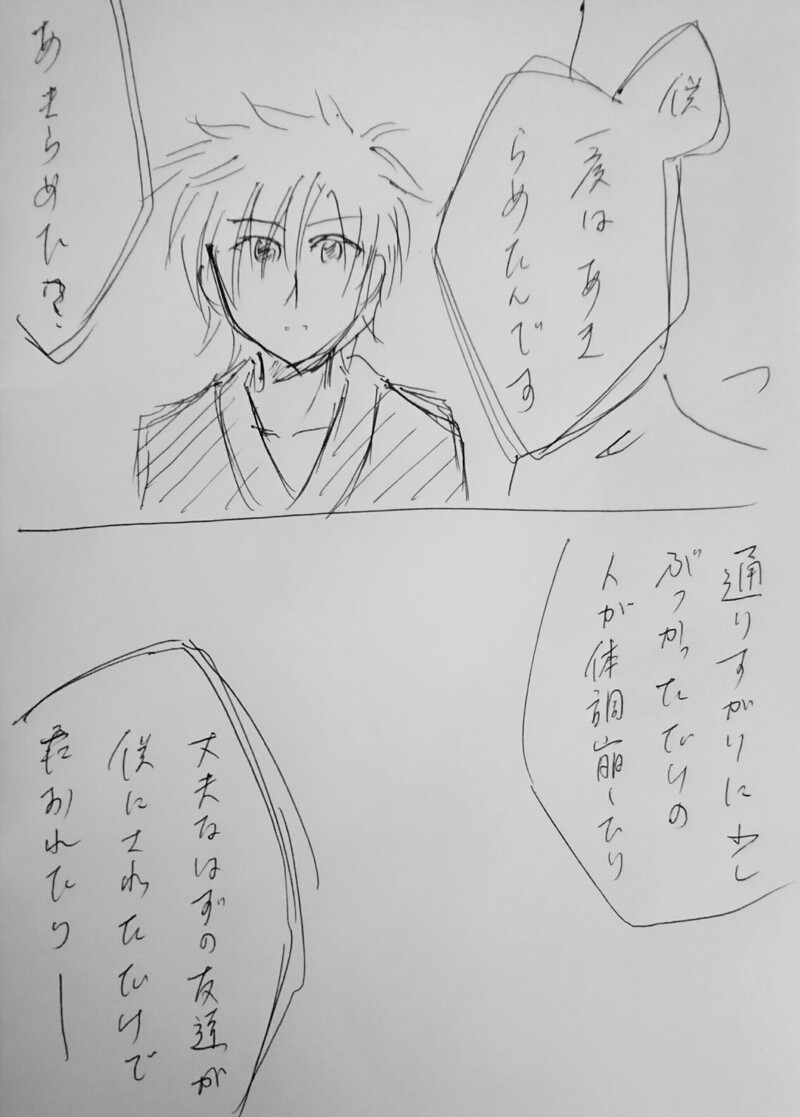 僕
一度はあき
らめたんです
あきらめた?
通りすがりに少し
ぶつかっただけの
人が体調崩したり
丈夫なはずの友達が
僕にされただけで
たおれたり—